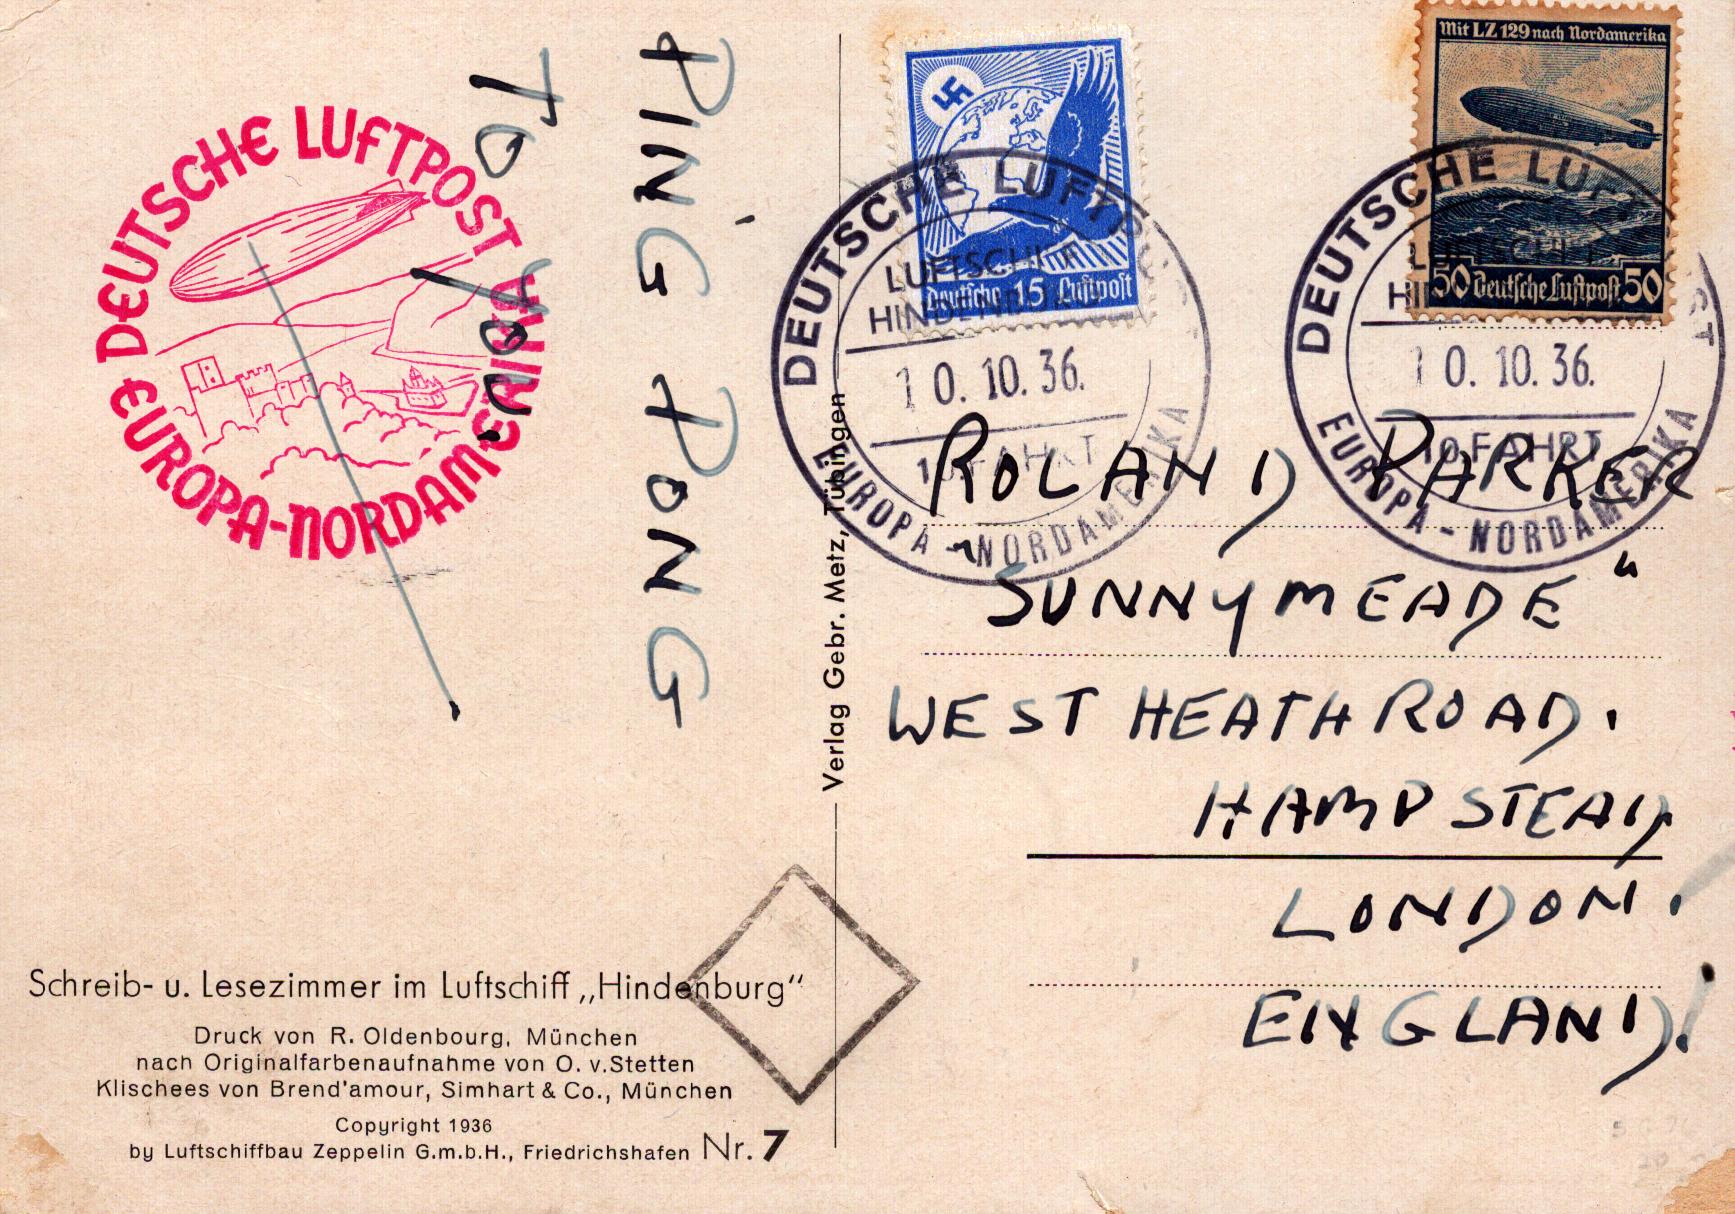 DEUTSCHE LUFTPOST
EUROPA-NORDAMERIKA
PING PONG
TO YOU.
Deutsche 15 Luftpost
Mit LZ 129 nach Nordamerika
50 Deutsche Luftpost 50
DEUTSCHE LUFTPOST
LUFTSCHIFF
HINDENBURG
10.10.36.
10.FAHRT
EUROPA - NORDAMERIKA
DEUTSCHE LUFTPOST
LUFTSCHIFF
10.10.36.
10.FAHRT
EUROPA - NORDAMERIKA
ROLAND PARKER
"SUNNYMEADE"
WEST HEATH ROAD.
HAMPSTEAD
LONDON.
ENGLAND!
Verlag Gebr. Metz, Tübingen
Schreib- u. Lesezimmer im Luftschiff „Hindenburg“
Druck von R. Oldenbourg, München
nach Originalfarbenaufnahme von O. v.Stetten
Klischees von Brend'amour, Simhart & Co., München
Copyright 1936
by Luftschiffbau Zeppelin G.m.b.H., Friedrichshafen Nr. 7